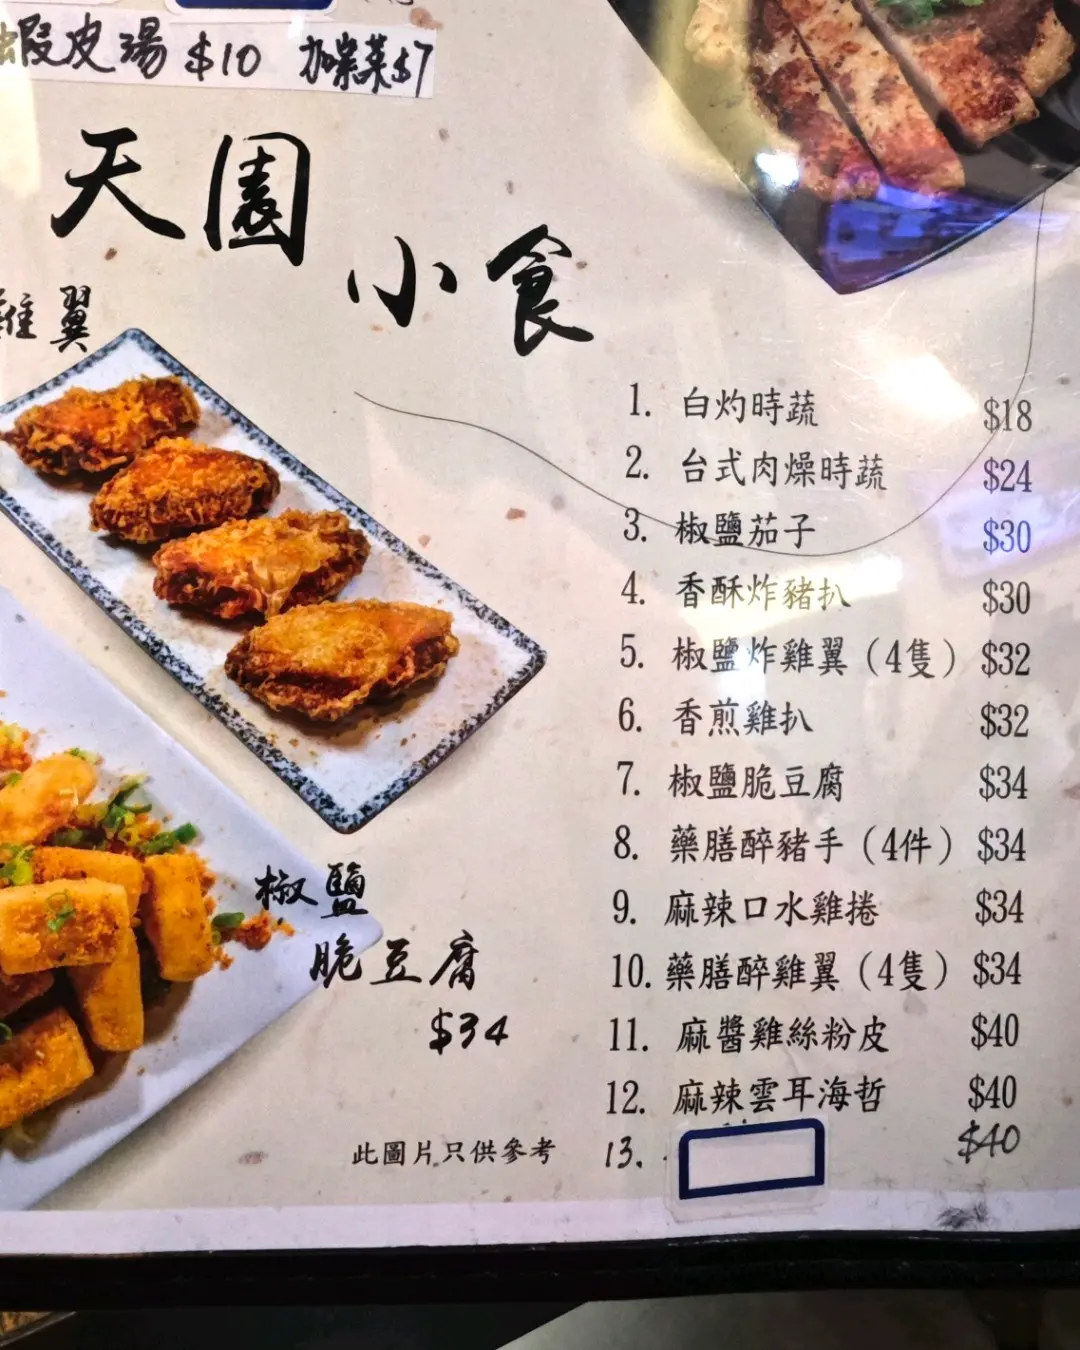 蝦皮湯 $10 加紫菜$7
天園
小食
雞翼
1. 白灼時蔬 $18
2. 台式肉燥時蔬 $24
3. 椒鹽茄子 $30
4. 香酥炸豬扒 $30
5. 椒鹽炸雞翼（4隻） $32
6. 香煎雞扒 $32
7. 椒鹽脆豆腐 $34
8. 藥膳醉豬手（4件） $34
9. 麻辣口水雞捲 $34
10. 藥膳醉雞翼（4隻） $34
11. 麻醬雞絲粉皮 $40
12. 麻辣雲耳海哲 $40
13. $40
椒鹽
脆豆腐
$34
此圖片只供參考